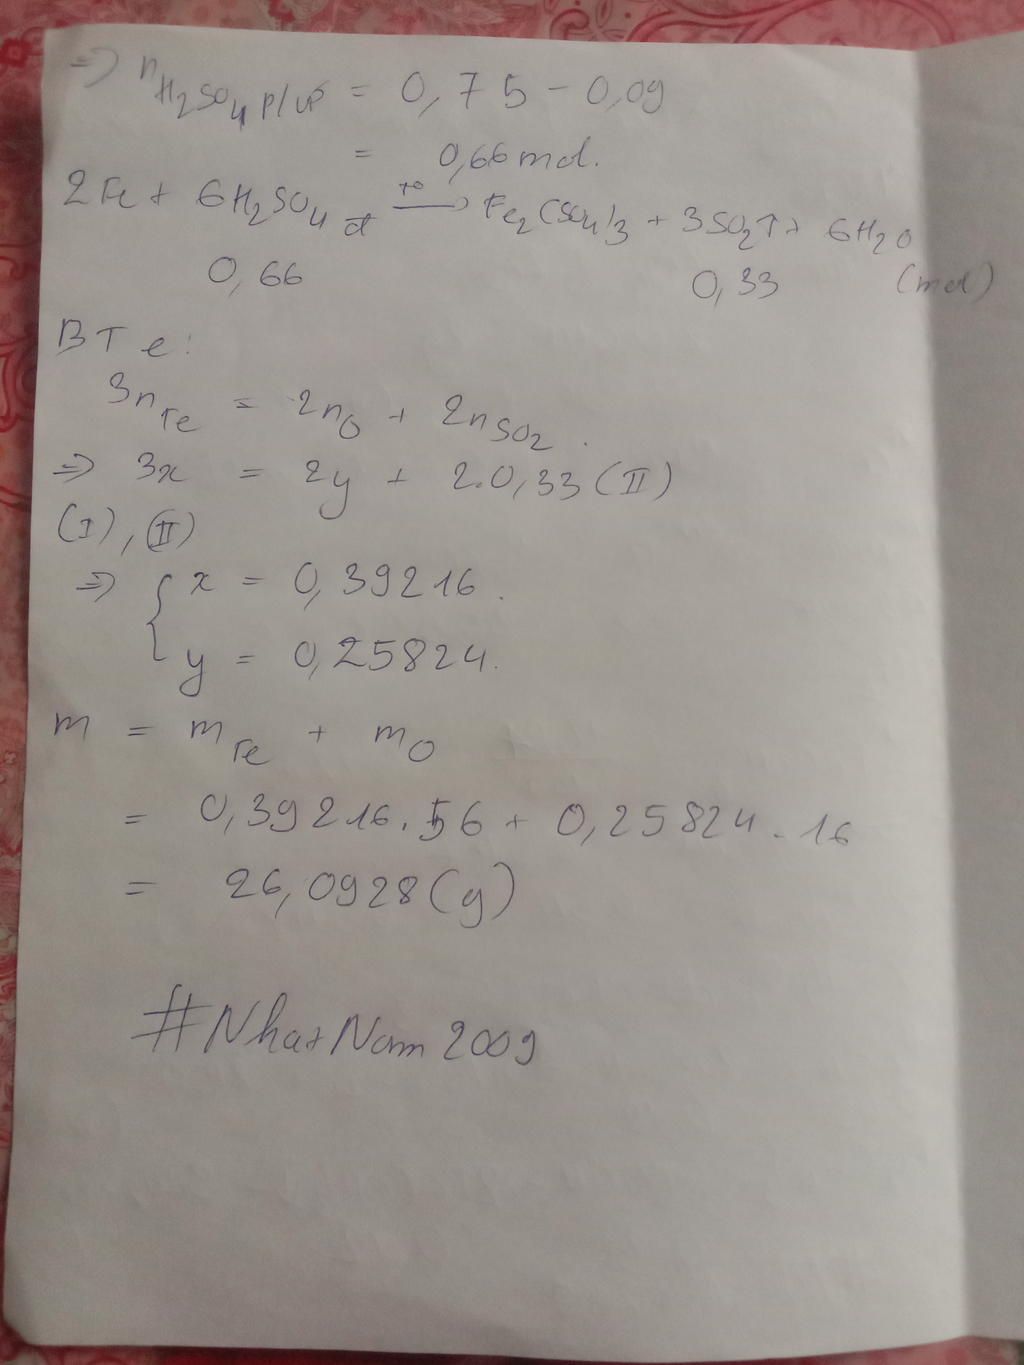 => nH2SO4 p/ứ = 0,75 - 0,09
= 0,66 mol.
2Fe + 6H2SO4 đ --t°--> Fe2(SO4)3 + 3SO2↑ + 6H2O
0,66 0,33 (mol)
BT e:
3nFe = 2nO + 2nSO2.
=> 3x = 2y + 2.0,33 (II)
(I), (II)
=> { x = 0,39216.
y = 0,25824.
m = mFe + mO
= 0,39216.56 + 0,25824.16
= 26,0928(g)
#NhatNam2009